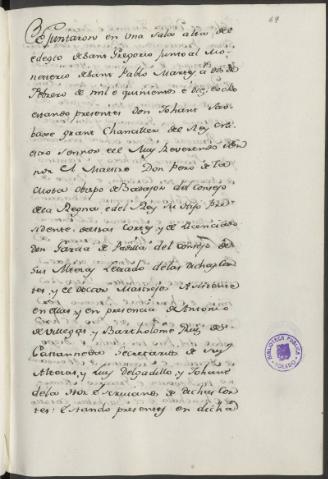 69
Se juntaron en una sala alta del
Colegio de Sant Gregorio junto al Mo-
nesterio de Sant Pablo Martes a dos de
Febrero de mil e quinientos e diez e ocho
estando presentes Don Johane
grant Chanciller del Rey
nuestro Sennor e el Muy Reverendo
el Maestro Don Pero
Obispo de Badajoz del Consejo
de la Reyna e del Rey su Fijo Pre-
sidente destas Cortes y el Licenciado
Don Garcia de Padilla del Consejo de
Sus Altezas Letrado de las dichas Cor-
tes y el Doctor
en ellas y en presencia de Antonio
de Villegas y Bartholome Ruiz de
Castanneda Secretarios de sus
Altezas, y Luis Delgadillo, y Johane
de la Hoz Escrivanos de dichas Cor-
tes: Estando presentes en dicha
BIBLIOTECA PUBLICA
TOLEDO